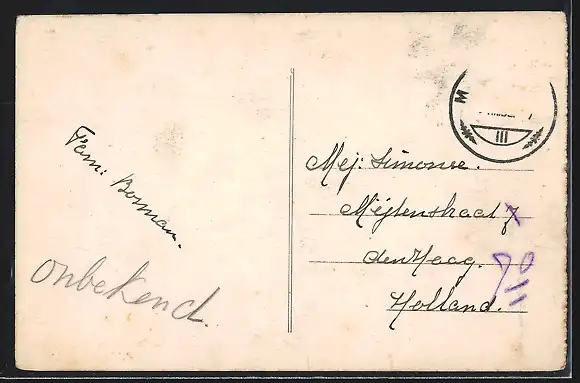 Fam: Borman.
onbekend.
M
III
Mej: Simonse.
Meijtenstraat 7
den Haag.
Holland.
90